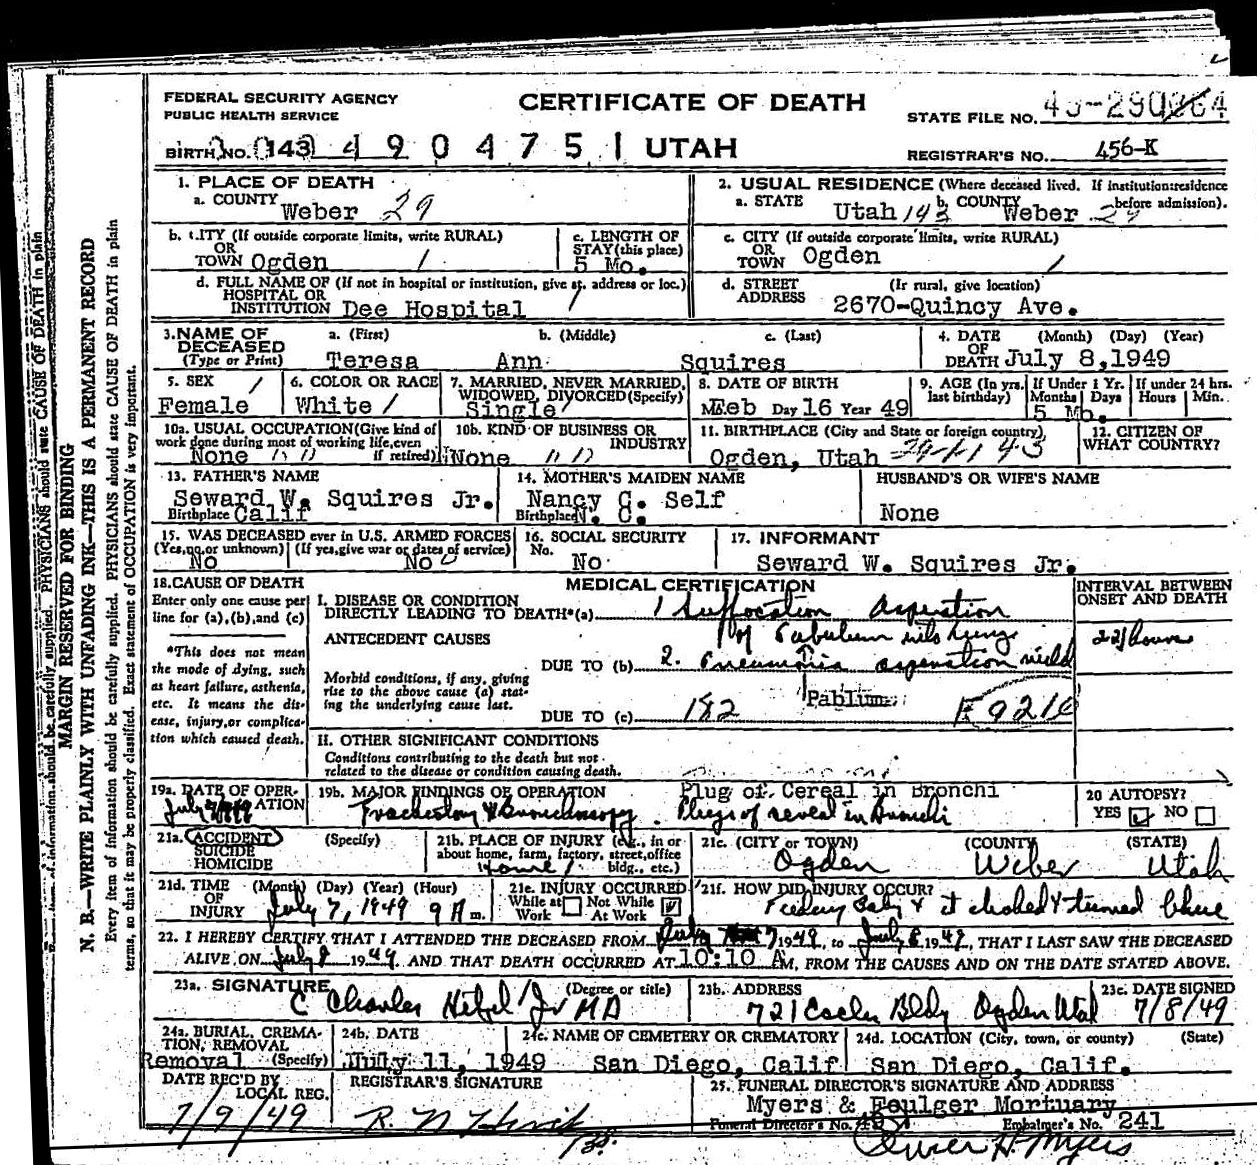 FEDERAL SECURITY AGENCY
PUBLIC HEALTH SERVICE
CERTIFICATE OF DEATH
STATE FILE NO.
BIRTH NO. 143 490475 | UTAH
REGISTRAR'S NO. 456-K
1. PLACE OF DEATH
a. COUNTY Weber 29
2. USUAL RESIDENCE (Where deceased lived. If institution:residence before admission).
a. STATE Utah 143 b. COUNTY Weber 29
b. CITY (If outside corporate limits, write RURAL)
OR
TOWN Ogden /
c. LENGTH OF
STAY (this place)
5 Mo.
c. CITY (If outside corporate limits, write RURAL)
OR
TOWN Ogden /
d. FULL NAME OF (If not in hospital or institution, give st. address or loc.)
HOSPITAL OR
INSTITUTION Dee Hospital /
d. STREET (Ir rural, give location)
ADDRESS 2670-Quincy Ave.
3. NAME OF
DECEASED
(Type or Print)
a. (First) b. (Middle) c. (Last)
Teresa Ann Squires
4. DATE (Month) (Day) (Year)
OF
DEATH July 8,1949
5. SEX /
Female
6. COLOR OR RACE
White /
7. MARRIED, NEVER MARRIED,
WIDOWED, DIVORCED (Specify)
Single /
8. DATE OF BIRTH
Feb Day 16 Year 49
9. AGE (In yrs. last birthday)
If Under 1 Yr. Months Days
5 Mo.
If under 24 hrs.
Hours Min.
10a. USUAL OCCUPATION (Give kind of
work done during most of working life, even
if retired)
None
10b. KIND OF BUSINESS OR
INDUSTRY
None
11. BIRTHPLACE (City and State or foreign country)
Ogden, Utah
12. CITIZEN OF
WHAT COUNTRY?
13. FATHER'S NAME
Seward W. Squires Jr.
Birthplace Calif
14. MOTHER'S MAIDEN NAME
Nancy C. Self
Birthplace N. C.
HUSBAND'S OR WIFE'S NAME
None
15. WAS DECEASED ever in U.S. ARMED FORCES
(Yes,no,or unknown) (If yes,give war or dates of service)
No No
16. SOCIAL SECURITY
No.
No
17. INFORMANT
Seward W. Squires Jr.
18. CAUSE OF DEATH
Enter only one cause per
line for (a),(b),and (c)
*This does not mean
the mode of dying, such
as heart failure, asthenia,
etc. It means the dis-
ease, injury, or complica-
tion which caused death.
MEDICAL CERTIFICATION
INTERVAL BETWEEN
ONSET AND DEATH
I. DISEASE OR CONDITION
DIRECTLY LEADING TO DEATH*(a) 1 Suffocation Asperation
of Pabulum into lungs
ANTECEDENT CAUSES
DUE TO (b) 2. Pneumonia asperation mild
22 hours
Morbid conditions, if any, giving
rise to the above cause (a) stat-
ing the underlying cause last.
Pablum
DUE TO (c) 182 E 921
II. OTHER SIGNIFICANT CONDITIONS
Conditions contributing to the death but not
related to the disease or condition causing death.
19a. DATE OF OPER-
ATION
July 7/1949
19b. MAJOR FINDINGS OF OPERATION Plug of Cereal in Bronchi
Tracheotomy & Bronchoscopy. Plugs of cereal in Bronchi
20 AUTOPSY?
YES ☑ NO ☐
21a. ACCIDENT (Specify)
SUICIDE
HOMICIDE
21b. PLACE OF INJURY (e.g., in or
about home, farm, factory, street, office
bldg., etc.)
Home /
21c. (CITY or TOWN) (COUNTY) (STATE)
Ogden Weber Utah
21d. TIME (Month) (Day) (Year) (Hour)
OF
INJURY July 7, 1949 9 A m.
21e. INJURY OCCURRED
While at Work ☐ Not While At Work ☑
21f. HOW DID INJURY OCCUR?
Feeding Baby & it choked & turned blue
22. I HEREBY CERTIFY THAT I ATTENDED THE DECEASED FROM July 7 1949, to July 8 1949, THAT I LAST SAW THE DECEASED
ALIVE ON July 8 1949 AND THAT DEATH OCCURRED AT 10:10 A M, FROM THE CAUSES AND ON THE DATE STATED ABOVE.
23a. SIGNATURE (Degree or title)
C Charles Hetzel Jr MD
23b. ADDRESS
721 Eccles Bldg Ogden Utah
23c. DATE SIGNED
7/8/49
24a. BURIAL, CREMA-
TION, REMOVAL
Removal (Specify)
24b. DATE
July 11, 1949
24c. NAME OF CEMETERY OR CREMATORY
San Diego, Calif
24d. LOCATION (City, town, or county) (State)
San Diego, Calif.
DATE REC'D BY
LOCAL REG.
7/9/49
REGISTRAR'S SIGNATURE
25. FUNERAL DIRECTOR'S SIGNATURE AND ADDRESS
Myers & Foulger Mortuary
Funeral Director's No. Embalmer's No. 241
MARGIN RESERVED FOR BINDING
N. B.—WRITE PLAINLY WITH UNFADING INK—THIS IS A PERMANENT RECORD
Every item of information should be carefully supplied. PHYSICIANS should state CAUSE OF DEATH in plain
terms, so that it may be properly classified. Exact statement of OCCUPATION is very important.